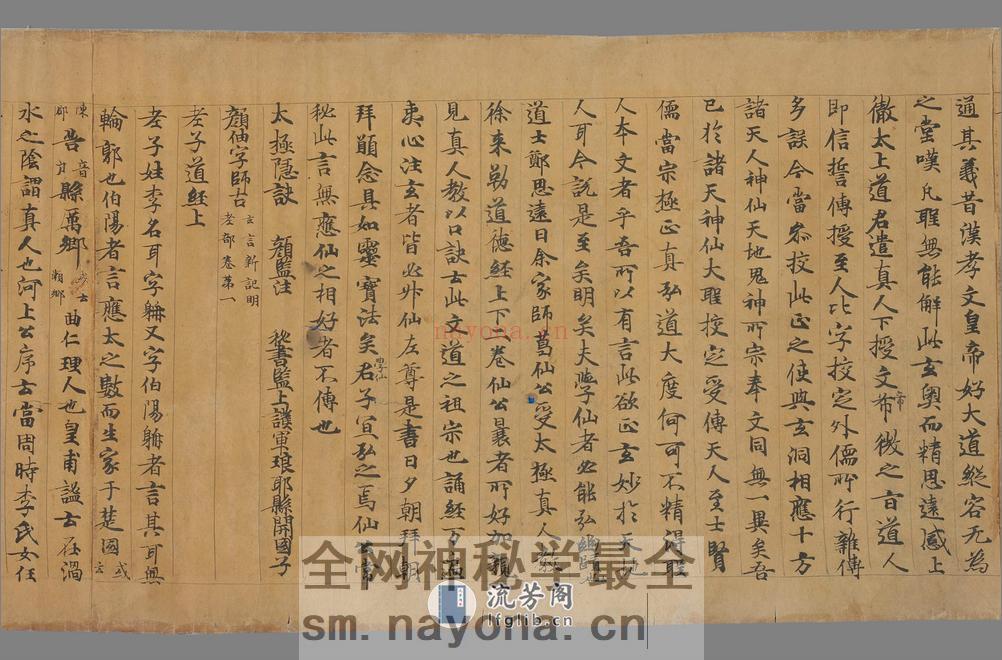 通其義昔漢孝文皇帝好大道縱容无為
之堂嘆凡聖無能解此玄奧而精思遠感上
徹太上道君遣真人下授文帝希微之旨道人
即信誓傳授至人比字校定外儒所行雜傳
多誤今當叅挍此正之使與玄洞相應十方
諸天人神仙天地鬼神所宗奉文同無一異矣吾
已於諸天神仙大聖挍定受傳天人至士賢
儒當宗極正真弘道大度何可不精得聖
人本文者乎吾所以有言此欲正玄妙於天
人耳今說是至矣明矣夫學仙者必能弘
道士鄭思遠曰余家師葛仙公受太極真人
徐来勒道德経上下卷仙公曩者所好加
見真人教以口訣士此文道之祖宗也誦経万遍
夷心注玄者皆必升仙左尊是書日夕朝拜朝
拜願念具如靈寶法矣學仙君子冝弘之焉仙公常
秘此言無應仙之相好者不傳也
太極隱訣 顏監注 秘書監上護軍琅耶縣開國子
顏師字師古 玄言新記明老部卷第一
老子道経上
老子姓李名耳字聃又字伯陽聃者言其耳無
輪郭也伯陽者言應太之數而生家于楚國或云
陳郡 苦音 縣萬鄉 瀨鄉 曲仁理人也皇甫謐士在渦
水之陰謂真人也河上公序士當周時李氏女任
nayona.cn
全网神秘学最全
流芳阁
lfglib.cn
sm.nayona.cn